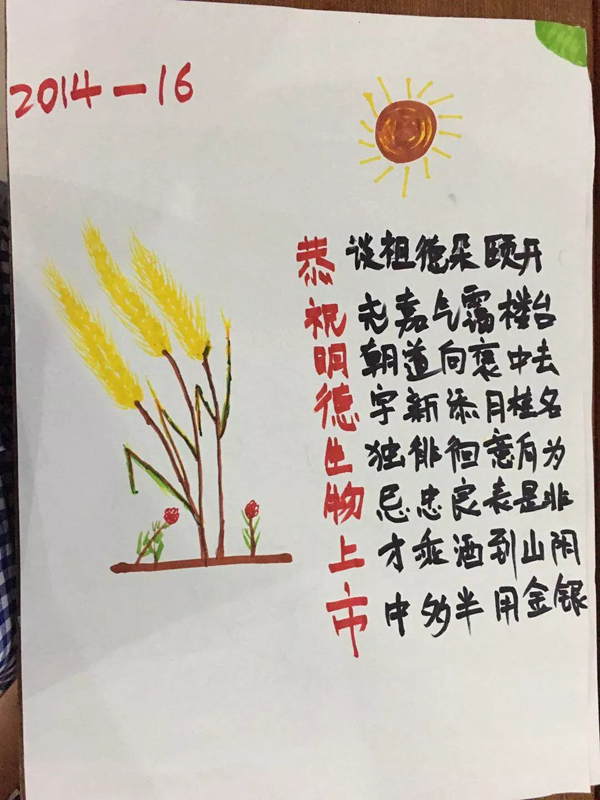 2014-16
恭谈祖德朵颐开
祝尧嘉气霭楼台
明朝道向褒中去
德字新添月桂名
生独徘徊意为
物忌忠良表是非
上才乘酒到山阴
市中多半用金银